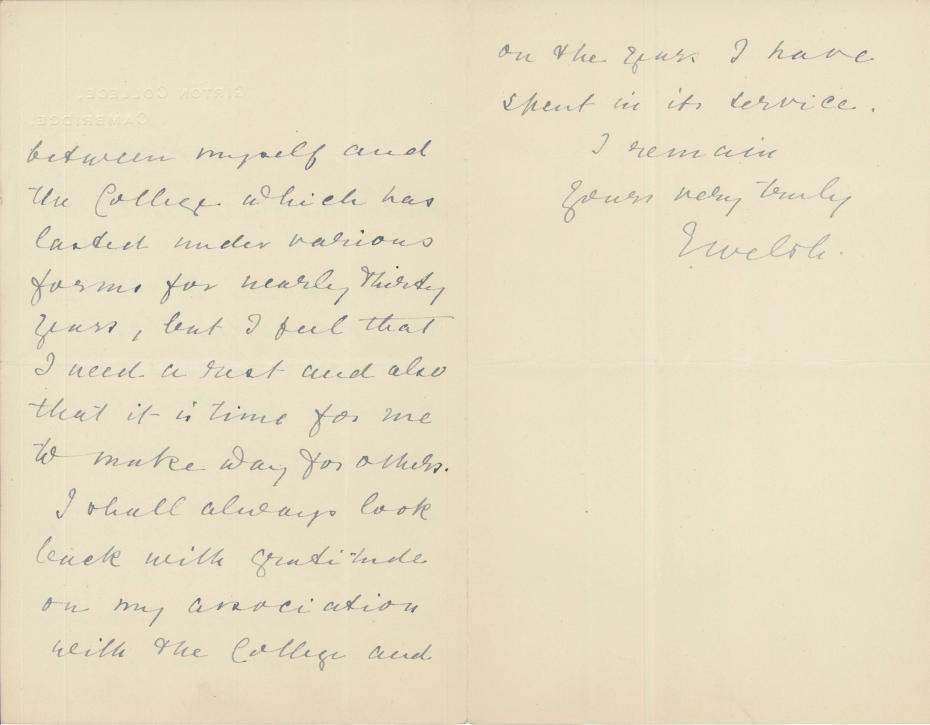 GIRTON COLLEGE,
CAMBRIDGE.
between myself and
the College which has
lasted under various
forms for nearly thirty
years, but I feel that
I need a rest and also
that it is time for me
to make way for others.
I shall always look
back with gratitude
on my association
with the College and
on the years I have
spent in its service.
I remain
yours very truly
E Welsh.